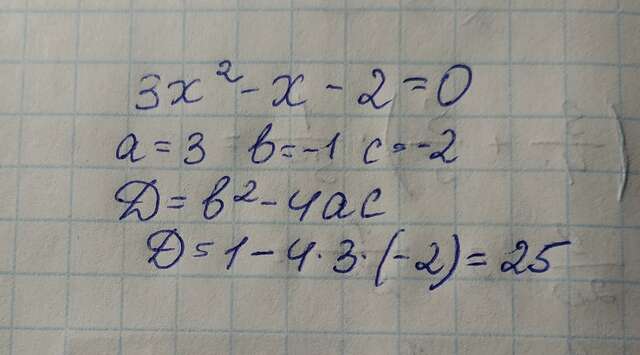 3x² - x - 2 = 0
a = 3 b = -1 c = -2
Д = b² - 4ac
Д = 1 - 4·3·(-2) = 25